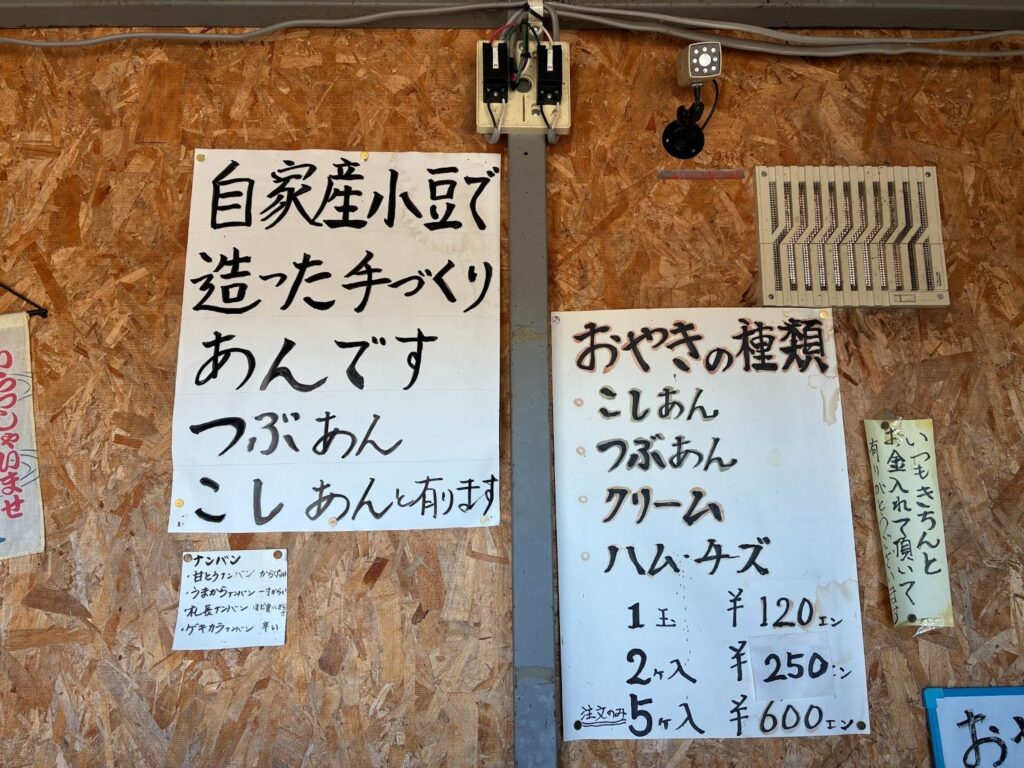 自家産小豆で
造った手づくり
あんです
つぶあん
こしあんと有ります
おやきの種類
こしあん
つぶあん
クリーム
ハム・チーズ
1玉 ¥120エン
2ヶ入 ¥250エン
注文のみ 5ヶ入 ¥600エン
いつもきちんと
お金入れて頂いて、
有りがとうございます
ナンバン
・甘とうナンバン からくない
・うまからナンバン 一寸からい
・札長ナンバン
・ゲキカラナンバン 辛い
いらっしゃいませ
おや